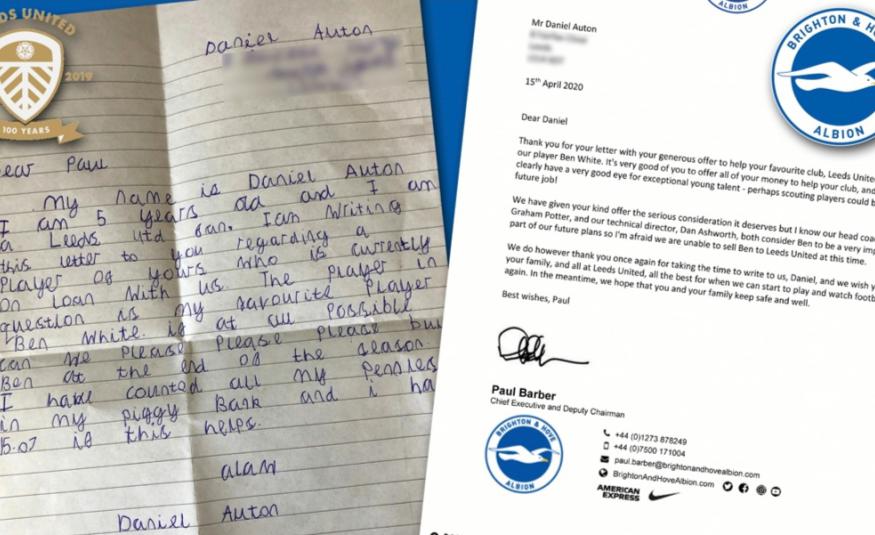 LEEDS UNITED
2019
100 YEARS
Daniel Auton
ear Paul
My name is Daniel Auton
I am 5 years old and I am
a Leeds Utd fan. I am Writing
this letter to you regarding a
Player of yours who is currently
on loan with us. The Player in
question is my favourite Player
Ben White. if at all Possible
can we Please Please Please bu
Ben at the end of the season
I have counted all my Pennies
in my piggy Bank and i ha
5.07 if this helps.
alaw
Daniel Auton
ALBION
BRIGHTON & HO
ALBION
Mr Daniel Auton
15th April 2020
Dear Daniel
Thank you for your letter with your generous offer to help your favourite club, Leeds Unite
our player Ben White. It's very good of you to offer all of your money to help your club, and
clearly have a very good eye for exceptional young talent - perhaps scouting players could b
future job!
We have given your kind offer the serious consideration it deserves but I know our head coa
Graham Potter, and our technical director, Dan Ashworth, both consider Ben to be a very imp
part of our future plans so I'm afraid we are unable to sell Ben to Leeds United at this time.
We do however thank you once again for taking the time to write to us, Daniel, and we wish y
your family, and all at Leeds United, all the best for when we can start to play and watch footb
again. In the meantime, we hope that you and your family keep safe and well.
Best wishes, Paul
Paul Barber
Chief Executive and Deputy Chairman
BRIGHTON & HOVE
ALBION
+44 (0)1273 878249
+44 (0)7500 171004
paul.barber@brightonandhovealbion.com
BrightonAndHoveAlbion.com
AMERICAN
EXPRESS